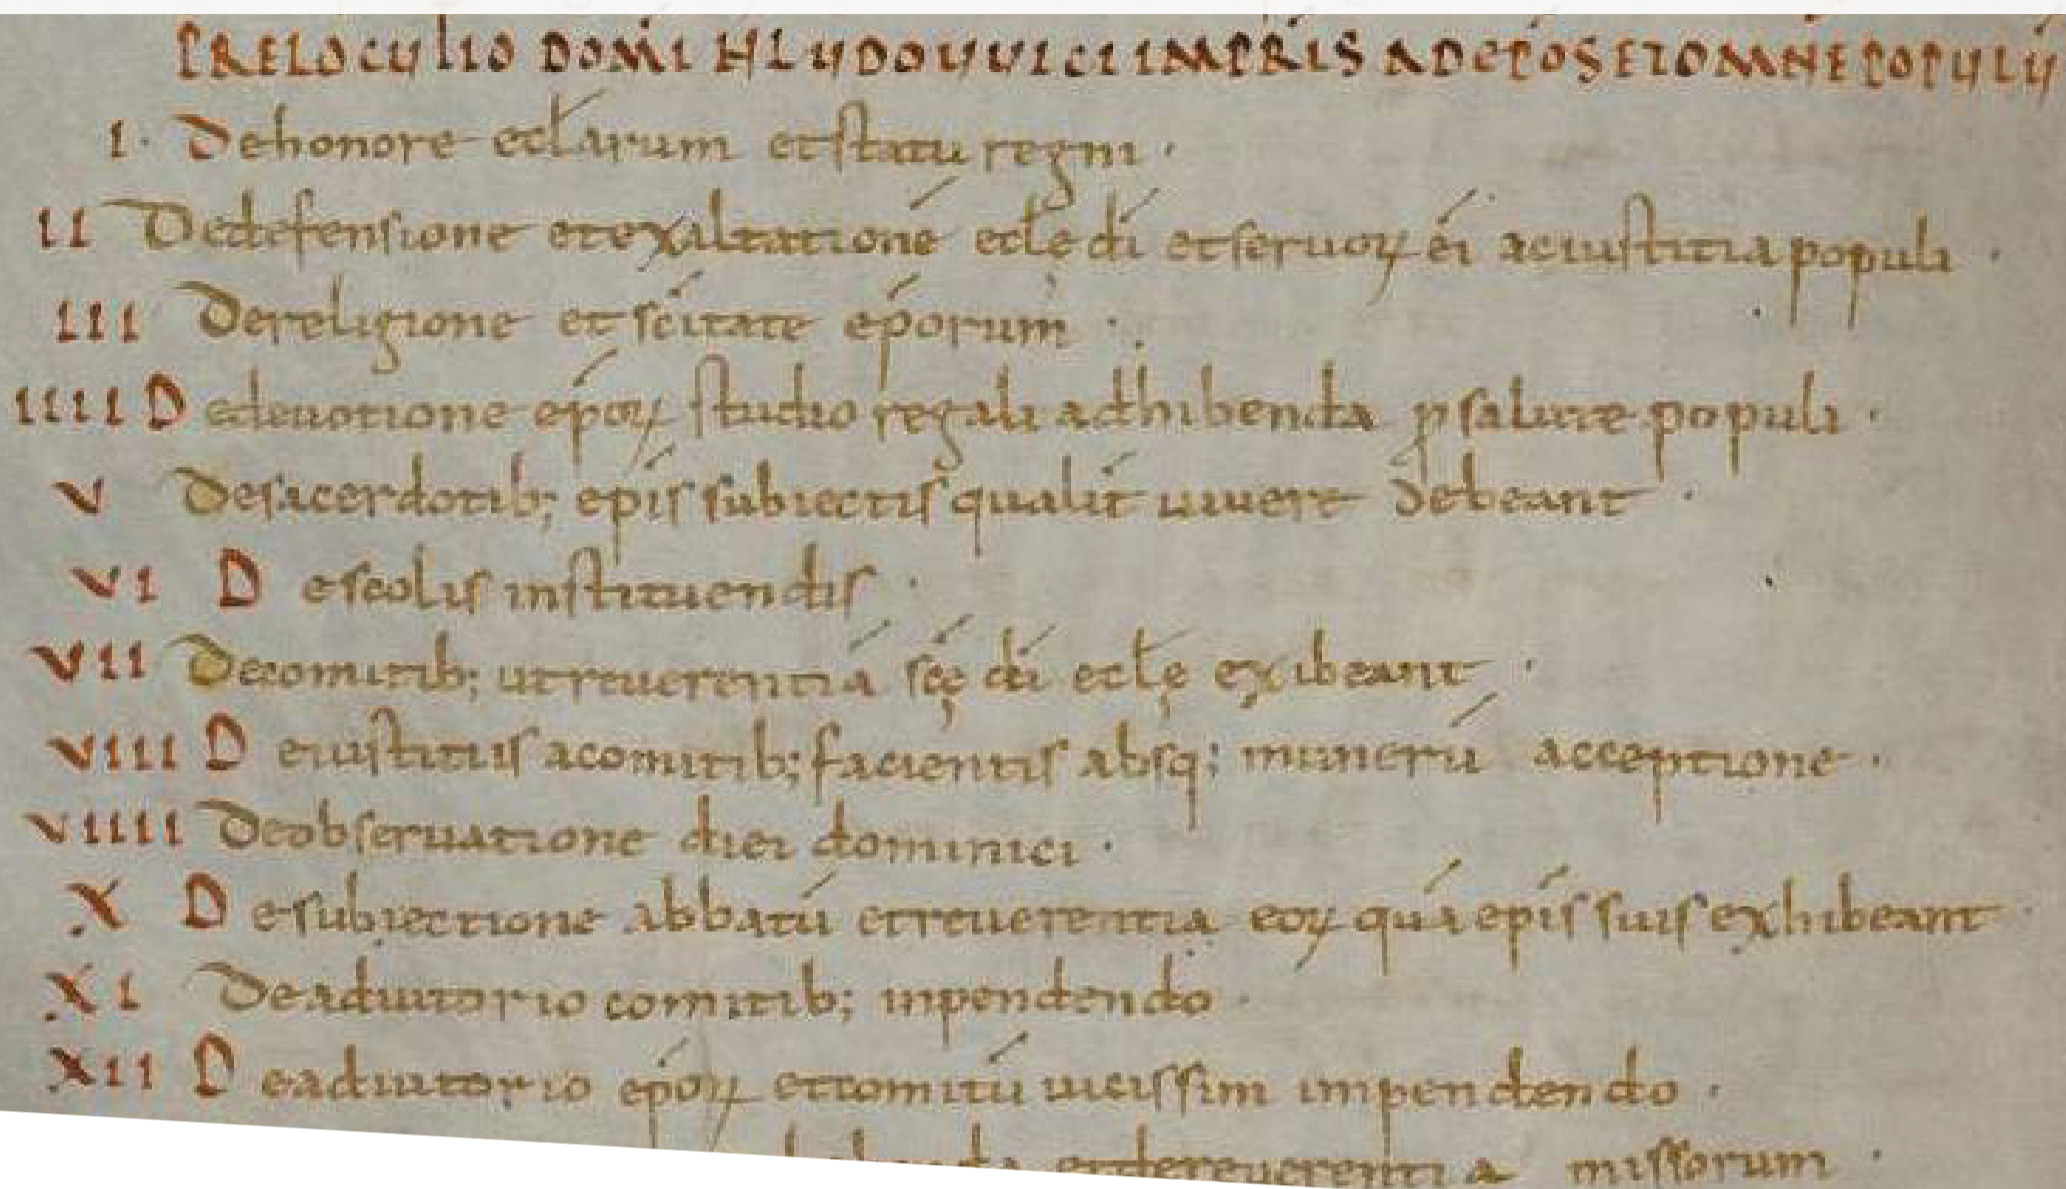 PRELOCUTIO DOMI HLUDOUUICI IMPRIS AD EPOS ET OMNE POPULU
I. De honore eclarum et statu regni.
II De defensione et exaltatione ecle di et seruoꝝ ei ac iustitia populi.
III De religione et scitate eporum.
IIII De deuotione epoꝝ studio regali adhibenda ꝓ salute populi.
V De sacerdotib; epis subiectis qualit uiuere debeant.
VI De scolis instituendis.
VII De comitib; ut reuerentiā scę di eclę exibeant.
VIII De iustitiis a comitib; facientis absq; munerū acceptione.
VIIII De obseruatione diei dominici.
X De subiectione abbatū et reuerentia eoꝝ quā epis suis exhibeant.
XI De adiutorio comitib; inpendendo.
XII De adiutorio epoꝝ et comitū uicissim impendendo.
et de reuerentia missorum.